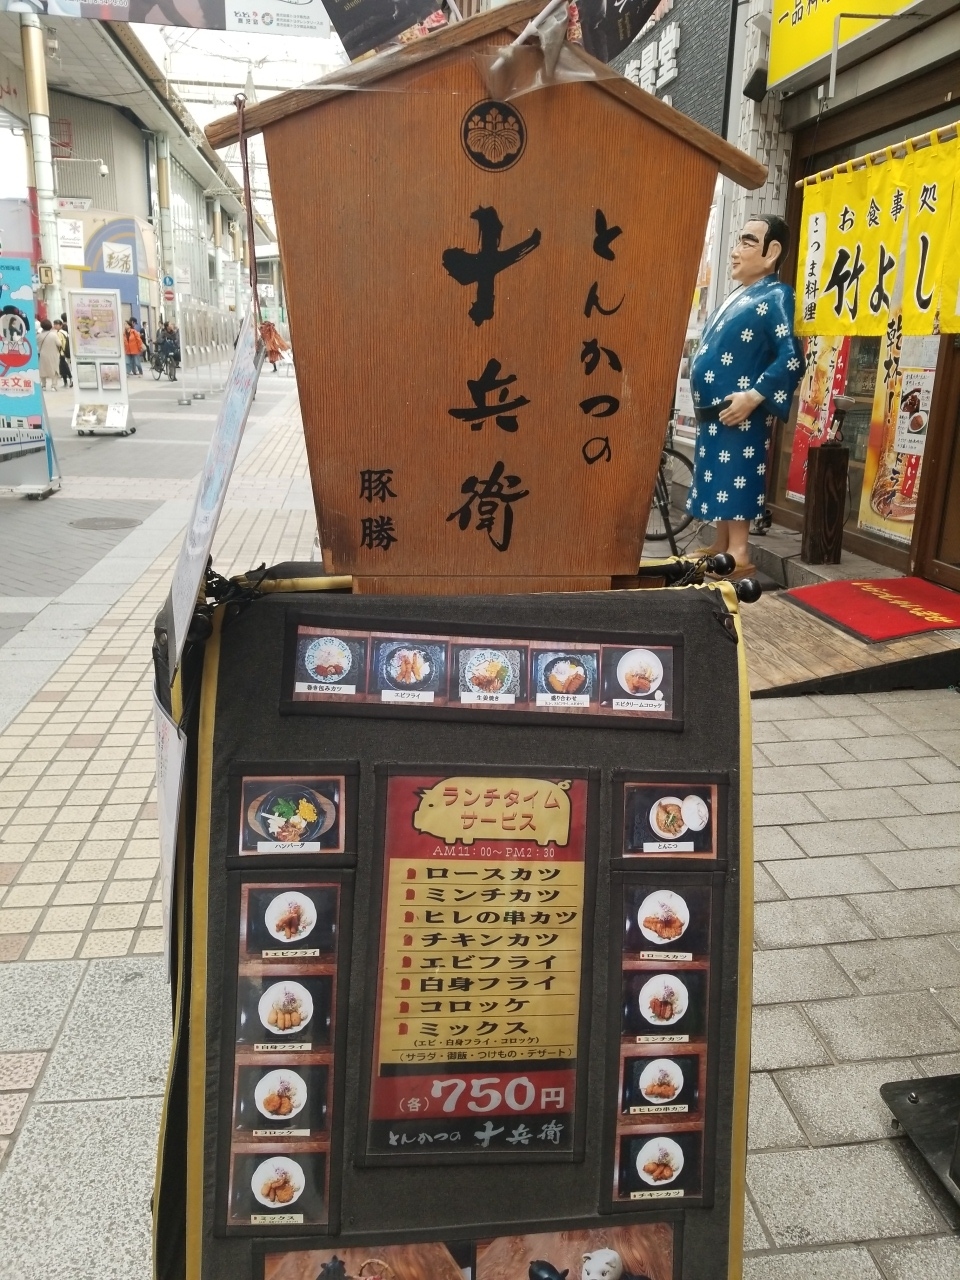 とんかつの
十兵衛
豚勝
お食事処
さつま料理
竹よし
一品料
天文館
巻き包みカツ
エビフライ
生姜焼き
盛り合わせ
エビクリームコロッケ
ハンバーグ
とんこつ
ランチタイム
サービス
AM11:00〜PM2:30
ロースカツ
ミンチカツ
ヒレの串カツ
チキンカツ
エビフライ
白身フライ
コロッケ
ミックス
(エビ・白身フライ・コロッケ)
(サラダ・御飯・つけもの・デザート)
(各)750円
とんかつの 十兵衛
エビフライ
白身フライ
コロッケ
ミックス
ロースカツ
ミンチカツ
ヒレの串カツ
チキンカツ